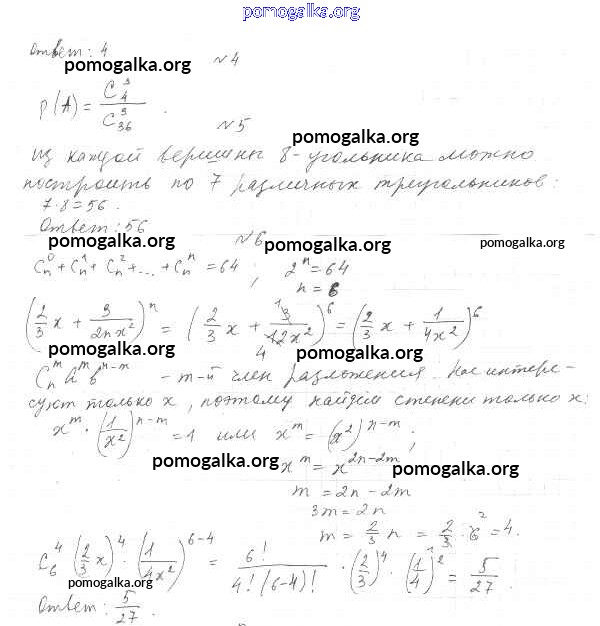 pomogalka.org
Ответ: 4
pomogalka.org
№4
P(A) = C_4^3 / C_36^3 .
№5
pomogalka.org
из каждой вершины 8-угольника можно
построить по 7 различных треугольников:
7·8=56.
Ответ: 56
№6
pomogalka.org pomogalka.org pomogalka.org
C_n^0 + C_n^1 + C_n^2 + ... + C_n^n = 64 ; 2^n = 64
n = 6
(2/3 x + 3/(2nx^2))^n = (2/3 x + 3/(12x^2))^6 = (2/3 x + 1/(4x^2))^6
1
4
pomogalka.org pomogalka.org
C_n^m a^m b^(n-m) - m-й член разложения. Нас интере-
суют только x, поэтому найдём степени только x:
x^m · (1/x^2)^(n-m) = 1 или x^m = (x^2)^(n-m) ;
pomogalka.org pomogalka.org
x^m = x^(2n-2m)
m = 2n - 2m
3m = 2n
m = 2/3 n = 2/3 · 6 = 4.
2
C_6^4 (2/3 x)^4 · (1/(4x^2))^(6-4) = 6!/(4!(6-4)!) · (2/3)^4 · (1/4)^2 = 5/27 .
pomogalka.org
Ответ: 5/27 .